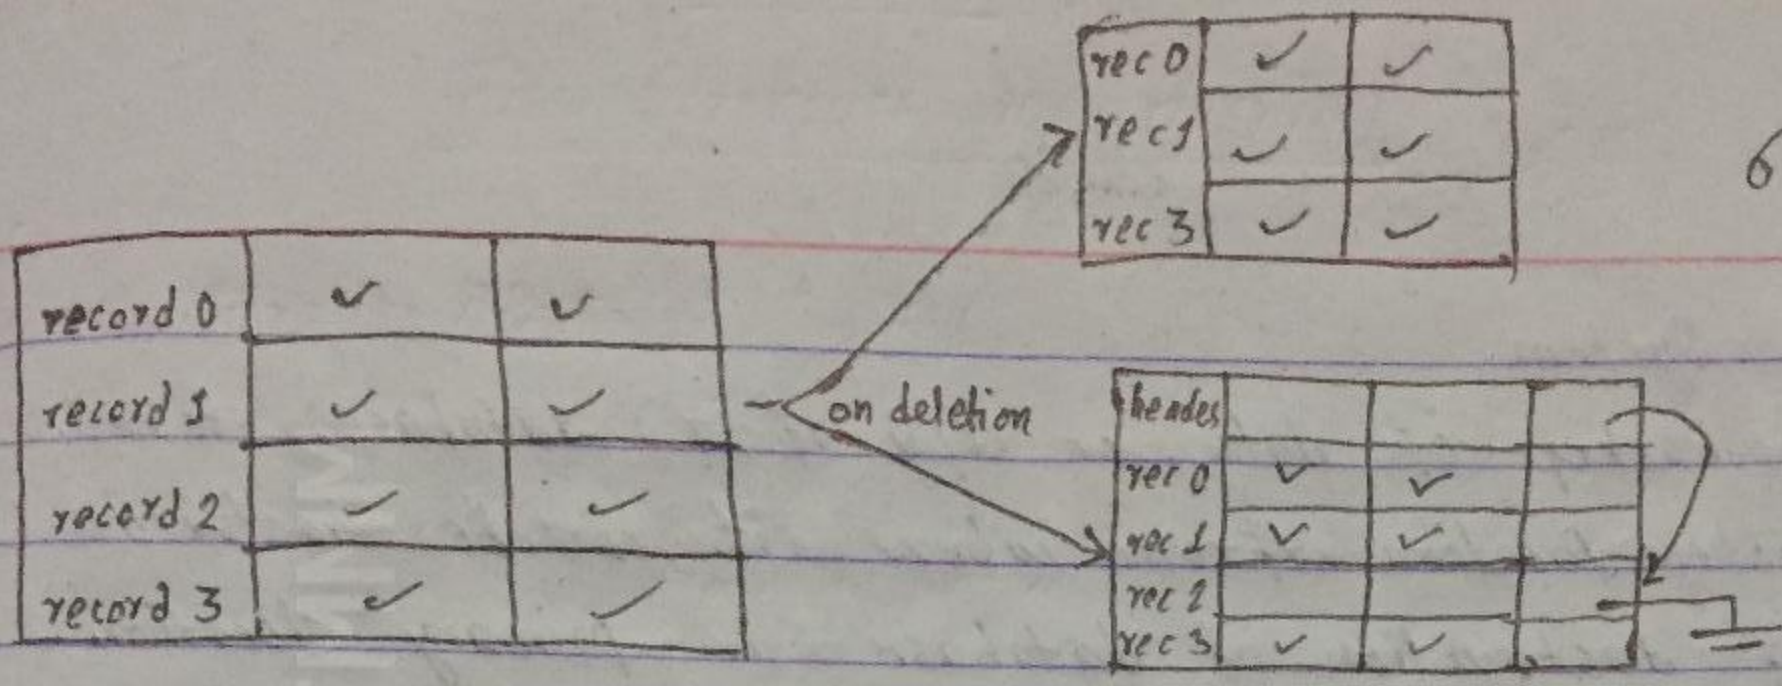 rec 0 ✓ ✓
rec 1 ✓ ✓
rec 3 ✓ ✓
6
record 0 ✓ ✓
record 1 ✓ ✓
record 2 ✓ ✓
record 3 ✓ ✓
on deletion
header
rec 0 ✓ ✓
rec 1 ✓ ✓
rec 2
rec 3 ✓ ✓